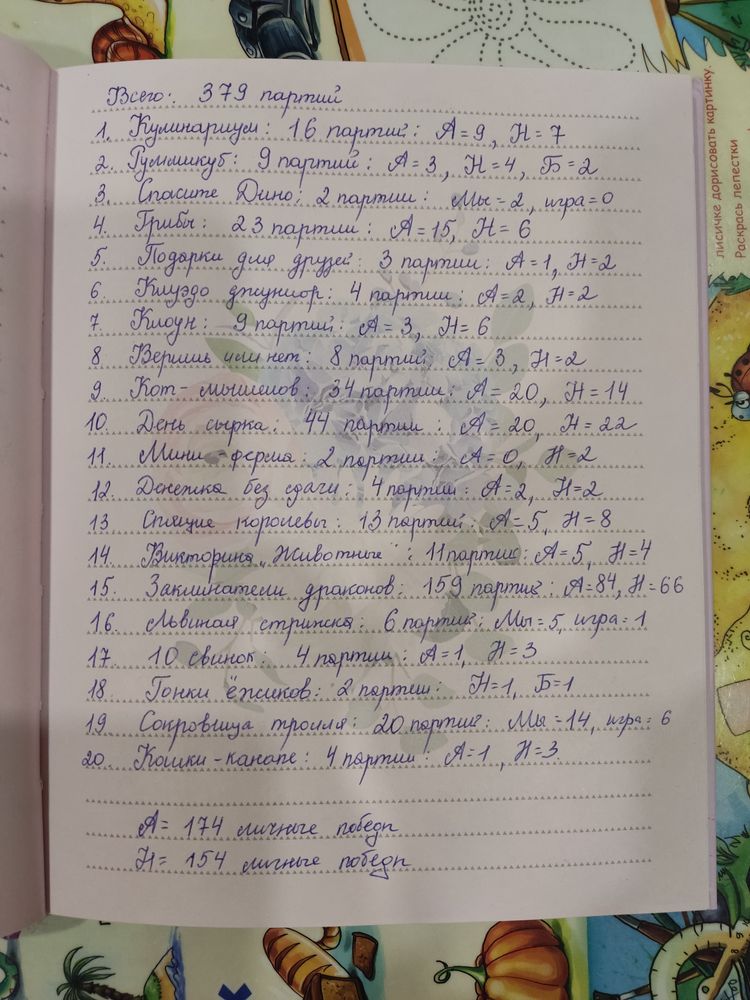 Всего: 379 партий
1. Кулинариум: 16 партий: А=9, Н=7
2. Руммикуб: 9 партий: А=3, Н=4, Б=2
3. Спасите Дино: 2 партии: Мы=2, игра=0
4. Грибы: 23 партии: А=15, Н=6
5. Подарки для друзей: 3 партии: А=1, Н=2
6. Клуэдо джуниор: 4 партии: А=2, Н=2
7. Клоун: 9 партий: А=3, Н=6
8 Веришь или нет: 8 партий: А=3, Н=2
9. Кот-мышелов: 34 партии: А=20, Н=14
10. День сырка: 44 партии: А=20, Н=22
11. Мини-ферма: 2 партии: А=0, Н=2
12. Денежка без сдачи: 4 партии: А=2, Н=2
13. Спящие королевы: 13 партий: А=5, Н=8
14. Викторина „Животные": 11 партий: А=5, Н=4
15. Заклинатели драконов: 159 партий: А=84, Н=66
16. Львиная стрижка: 6 партий: Мы=5, игра=1
17. 10 свинок: 4 партии: А=1, Н=3
18. Гонки ёжиков: 2 партии: Н=1, Б=1
19 Сокровища тролля: 20 партий: Мы=14, игра=6
20. Кошки-канапе: 4 партии: А=1, Н=3.
А= 174 личные победы
Н= 154 личные победы
лисичке дорисовать картинку.
Раскрась лепестки